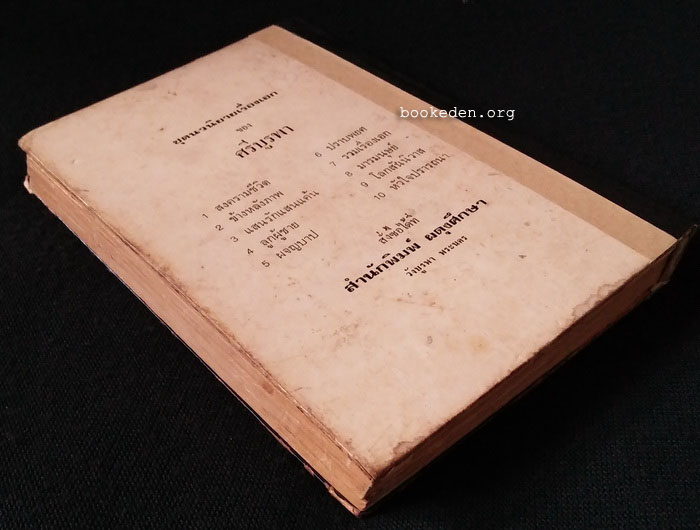 bookeden.org
ชุดนวนิยายเรื่องเอก
ของ
ศรีบูรพา
1 สงครามชีวิต
2 ข้างหลังภาพ
3 แสนรักแสนแค้น
4 ลูกผู้ชาย
5 ผจญบาป
6 ปราบพยศ
7 รวมเรื่องเอก
8 มารมนุษย์
9 โลกสันนิวาส
10 หัวใจปรารถนา
สั่งซื้อได้ที่
สำนักพิมพ์ ผดุงศึกษา
วังบูรพา พระนคร